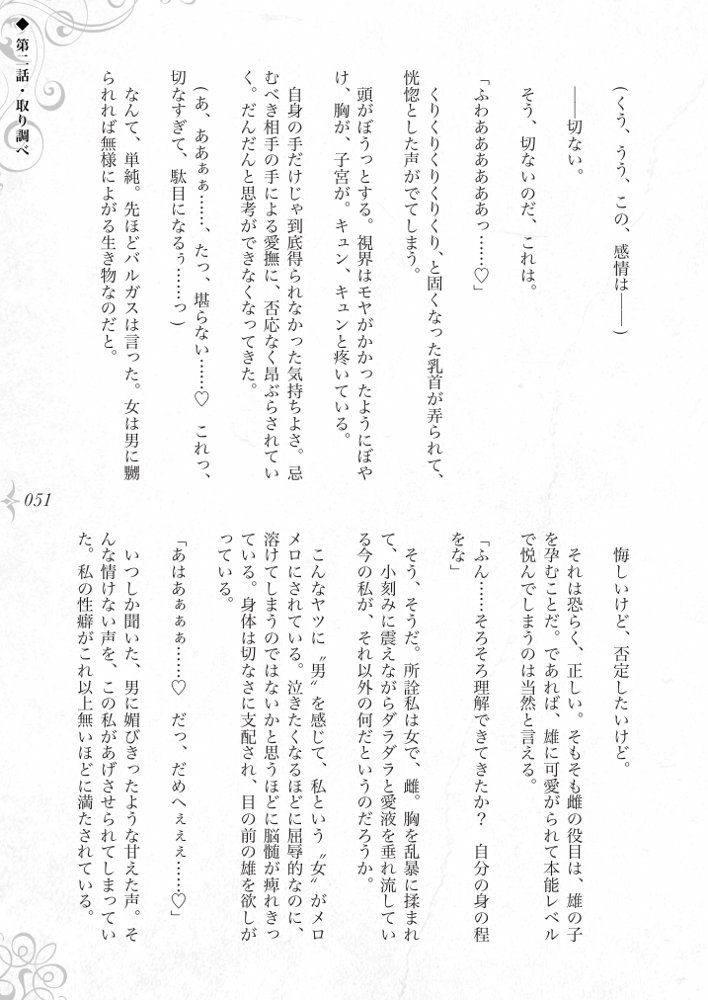 ◆第二話・取り調べ
(くう、うう、この、感情は――)
――切ない。
そう、切ないのだ、これは。
「ふわあああああぁっ……♡」
くりくりくりくりくり、と固くなった乳首が弄られて、
恍惚とした声がでてしまう。
頭がぼうっとする。視界はモヤがかかったようにぼや
け、胸が、子宮が。キュン、キュンと疼いている。
自身の手だけじゃ到底得られなかった気持ちよさ。忌
むべき相手の手による愛撫に、否応なく昂ぶらされてい
く。だんだんと思考ができなくなってきた。
(あ、ああぁぁ……、たっ、堪らない……♡　これっ、
切なすぎて、駄目になるぅ……っ)
なんて、単純。先ほどバルガスは言った。女は男に嬲
られれば無様によがる生き物なのだと。
悔しいけど、否定したいけど。
それは恐らく、正しい。そもそも雌の役目は、雄の子
を孕むことだ。であれば、雄に可愛がられて本能レベル
で悦んでしまうのは当然と言える。
「ふん……そろそろ理解できてきたか？　自分の身の程
をな」
そう、そうだ。所詮私は女で、雌。胸を乱暴に揉まれ
て、小刻みに震えながらダラダラと愛液を垂れ流してい
る今の私が、それ以外の何だというのだろうか。
こんなヤツに〝男〟を感じて、私という〝女〟がメロ
メロにされている。泣きたくなるほどに屈辱的なのに、
溶けてしまうのではないかと思うほどに脳髄が痺れきっ
ている。身体は切なさに支配され、目の前の雄を欲しが
っている。
「あはあぁぁぁ……♡　だっ、だめへぇぇぇ……♡」
いつしか聞いた、男に媚びきったような甘えた声。そ
んな情けない声を、この私があげさせられてしまってい
た。私の性癖がこれ以上無いほどに満たされている。
051